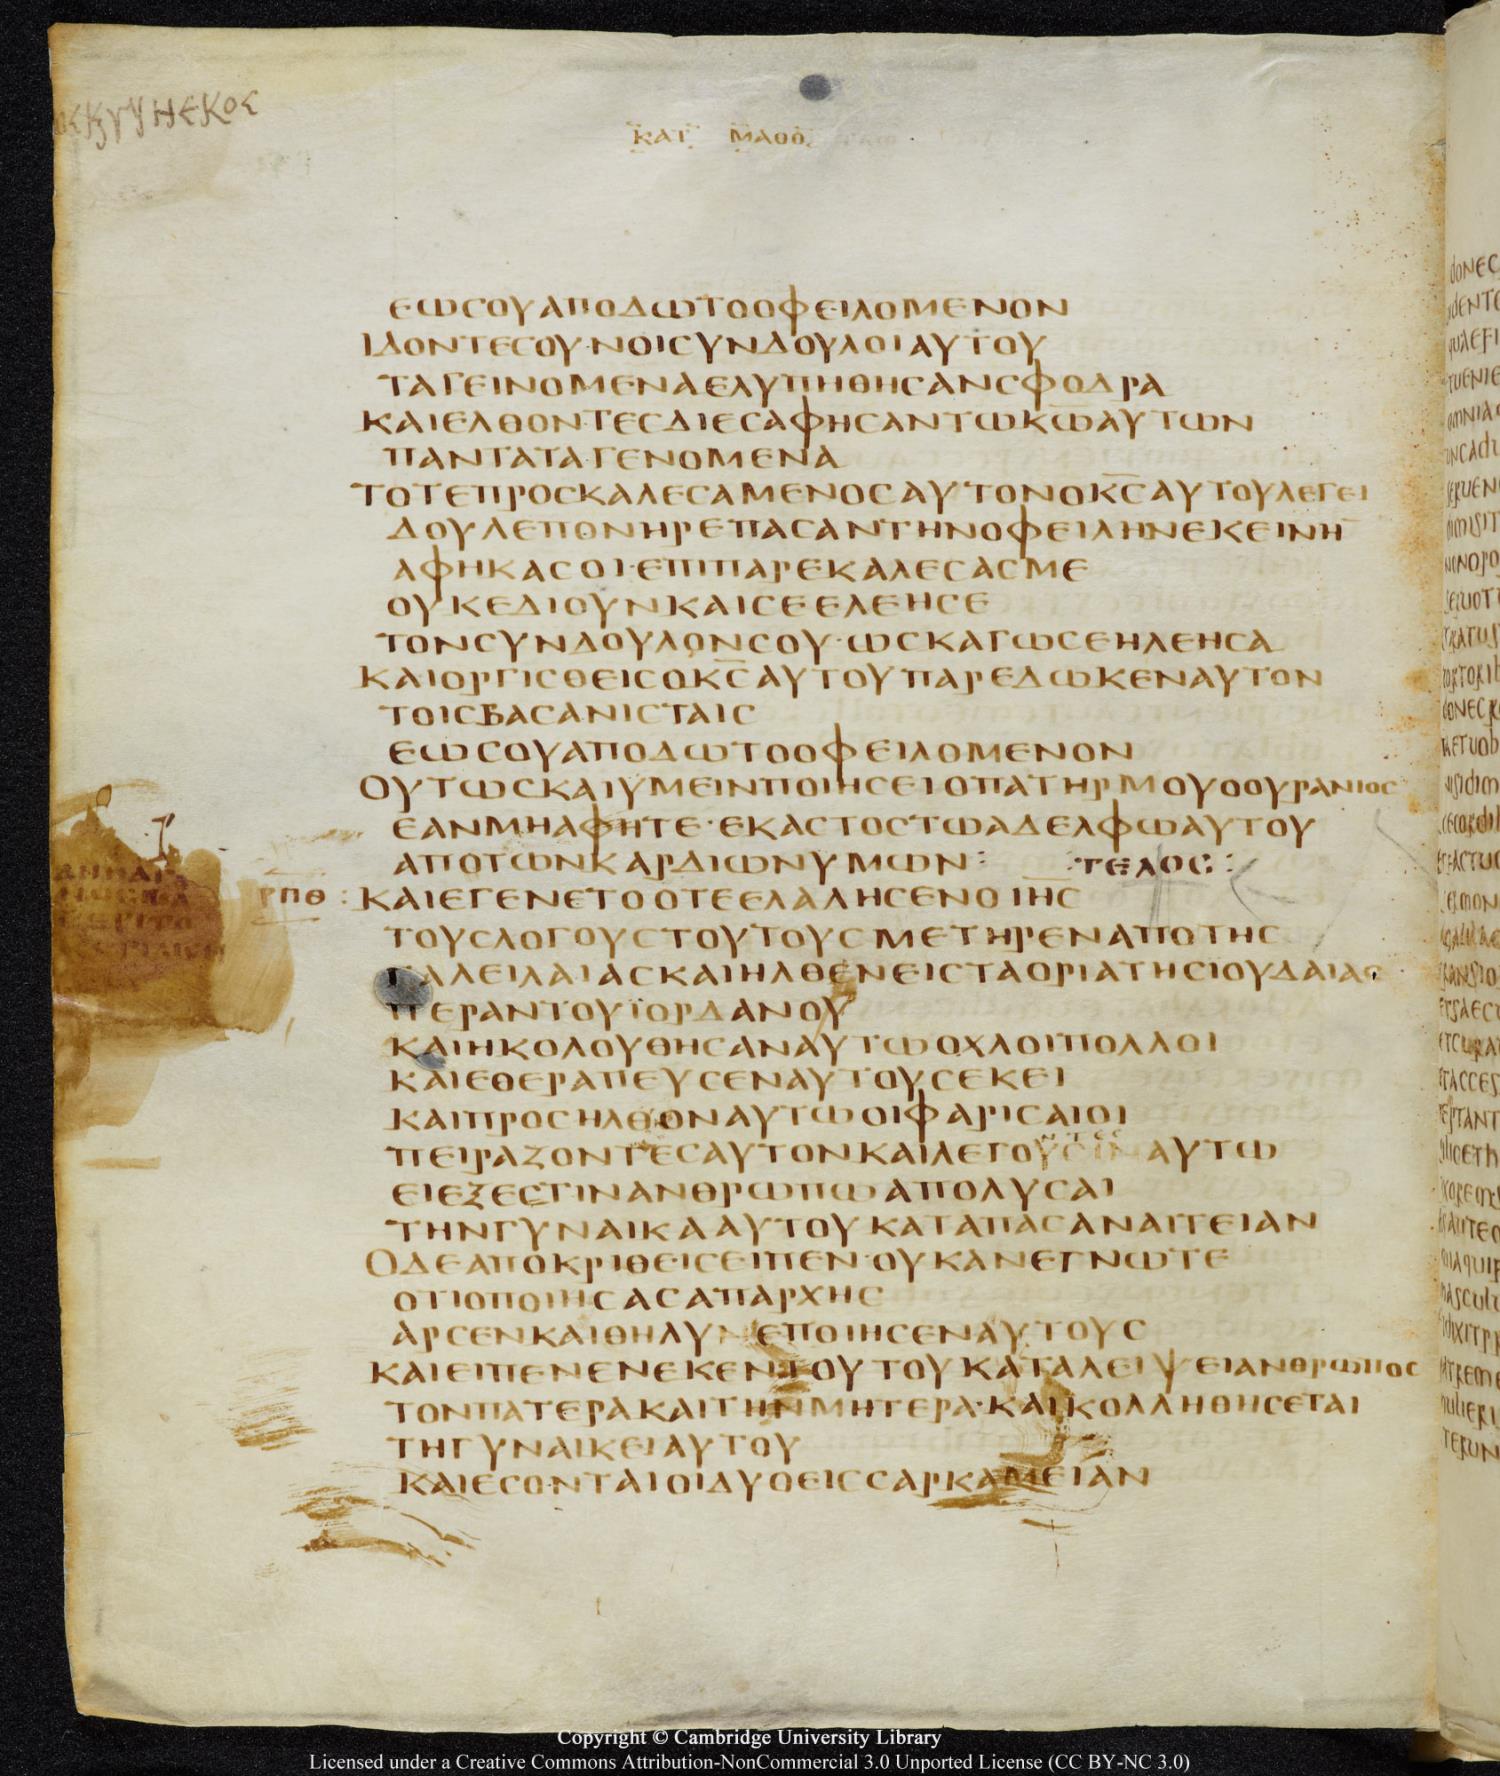 ΚΑΤ ΜΑΘΘ
ΕΩϹΟΥΑΠΟΔΩΤΟΟΦΕΙΛΟΜΕΝΟΝ
ΙΔΟΝΤΕϹΟΥΝΟΙϹΥΝΔΟΥΛΟΙΑΥΤΟΥ
ΤΑΓΕΙΝΟΜΕΝΑΕΛΥΠΗΘΗϹΑΝϹΦΟΔΡΑ
ΚΑΙΕΛΘΟΝΤΕϹΔΙΕϹΑΦΗϹΑΝΤΩΚΩ̅ΑΥΤΩΝ
ΠΑΝΤΑΤΑΓΕΝΟΜΕΝΑ
ΤΟΤΕΠΡΟϹΚΑΛΕϹΑΜΕΝΟϹΑΥΤΟΝΟΚ̅Ϲ̅ΑΥΤΟΥΛΕΓΕΙ
ΔΟΥΛΕΠΟΝΗΡΕΠΑϹΑΝΤΗΝΟΦΕΙΛΗΝΕΚΕΙΝΗ̅
ΑΦΗΚΑϹΟΙ·ΕΠΙΠΑΡΕΚΑΛΕϹΑϹΜΕ
ΟΥΚΕΔΙΟΥΝΚΑΙϹΕΕΛΕΗϹΕ
ΤΟΝϹΥΝΔΟΥΛΟΝϹΟΥ·ΩϹΚΑΓΩϹΕΗΛΕΗϹΑ
ΚΑΙΟΡΓΙϹΘΕΙϹΟΚ̅Ϲ̅ΑΥΤΟΥΠΑΡΕΔΩΚΕΝΑΥΤΟΝ
ΤΟΙϹΒΑϹΑΝΙϹΤΑΙϹ
ΕΩϹΟΥΑΠΟΔΩΤΟΟΦΕΙΛΟΜΕΝΟΝ
ΟΥΤΩϹΚΑΙΥΜΕΙΝΠΟΙΗϹΕΙΟΠΑΤΗΡΜΟΥΟΟΥΡΑΝΙΟϹ
ΕΑΝΜΗΑΦΗΤΕ·ΕΚΑϹΤΟϹΤΩΑΔΕΛΦΩΑΥΤΟΥ
ΑΠΟΤΩΝΚΑΡΔΙΩΝΥΜΩΝ: ΤΕΛΟϹ:
ΡΠΘ : ΚΑΙΕΓΕΝΕΤΟΟΤΕΕΛΑΛΗϹΕΝΟΙ̅Η̅Ϲ̅
ΤΟΥϹΛΟΓΟΥϹΤΟΥΤΟΥϹΜΕΤΗΡΕΝΑΠΟΤΗϹ
ΓΑΛΕΙΛΑΙΑϹΚΑΙΗΛΘΕΝΕΙϹΤΑΟΡΙΑΤΗϹΙΟΥΔΑΙΑϹ
ΠΕΡΑΝΤΟΥΪΟΡΔΑΝΟΥ
ΚΑΙΗΚΟΛΟΥΘΗϹΑΝΑΥΤΩΟΧΛΟΙΠΟΛΛΟΙ
ΚΑΙΕΘΕΡΑΠΕΥϹΕΝΑΥΤΟΥϹΕΚΕΙ
ΚΑΙΠΡΟϹΗΛΘΟΝΑΥΤΩΟΙΦΑΡΙϹΑΙΟΙ
ΠΕΙΡΑΖΟΝΤΕϹΑΥΤΟΝΚΑΙΛΕΓΟΥϹΙΝΑΥΤΩ
ΕΙΕΞΕϹΤΙΝΑΝΘΡΩΠΩΑΠΟΛΥϹΑΙ
ΤΗΝΓΥΝΑΙΚΑΑΥΤΟΥΚΑΤΑΠΑϹΑΝΑΙΤΕΙΑΝ
ΟΔΕΑΠΟΚΡΙΘΕΙϹΕΙΠΕΝ·ΟΥΚΑΝΕΓΝΩΤΕ
ΟΤΙΟΠΟΙΗϹΑϹΑΠΑΡΧΗϹ
ΑΡϹΕΝΚΑΙΘΗΛΥΝΕΠΟΙΗϹΕΝΑΥΤΟΥϹ
ΚΑΙΕΙΠΕΝΕΝΕΚΕΝΤΟΥΤΟΥΚΑΤΑΛΕΙΨΕΙΑΝΘΡΩΠΟϹ
ΤΟΝΠΑΤΕΡΑΚΑΙΤΗΝΜΗΤΕΡΑ·ΚΑΙΚΟΛΛΗΘΗϹΕΤΑΙ
ΤΗΓΥΝΑΙΚΕΙΑΥΤΟΥ
ΚΑΙΕϹΟΝΤΑΙΟΙΔΥΟΕΙϹϹΑΡΚΑΜΕΙΑΝ
Copyright © Cambridge University Library
Licensed under a Creative Commons Attribution-NonCommercial 3.0 Unported License (CC BY-NC 3.0)